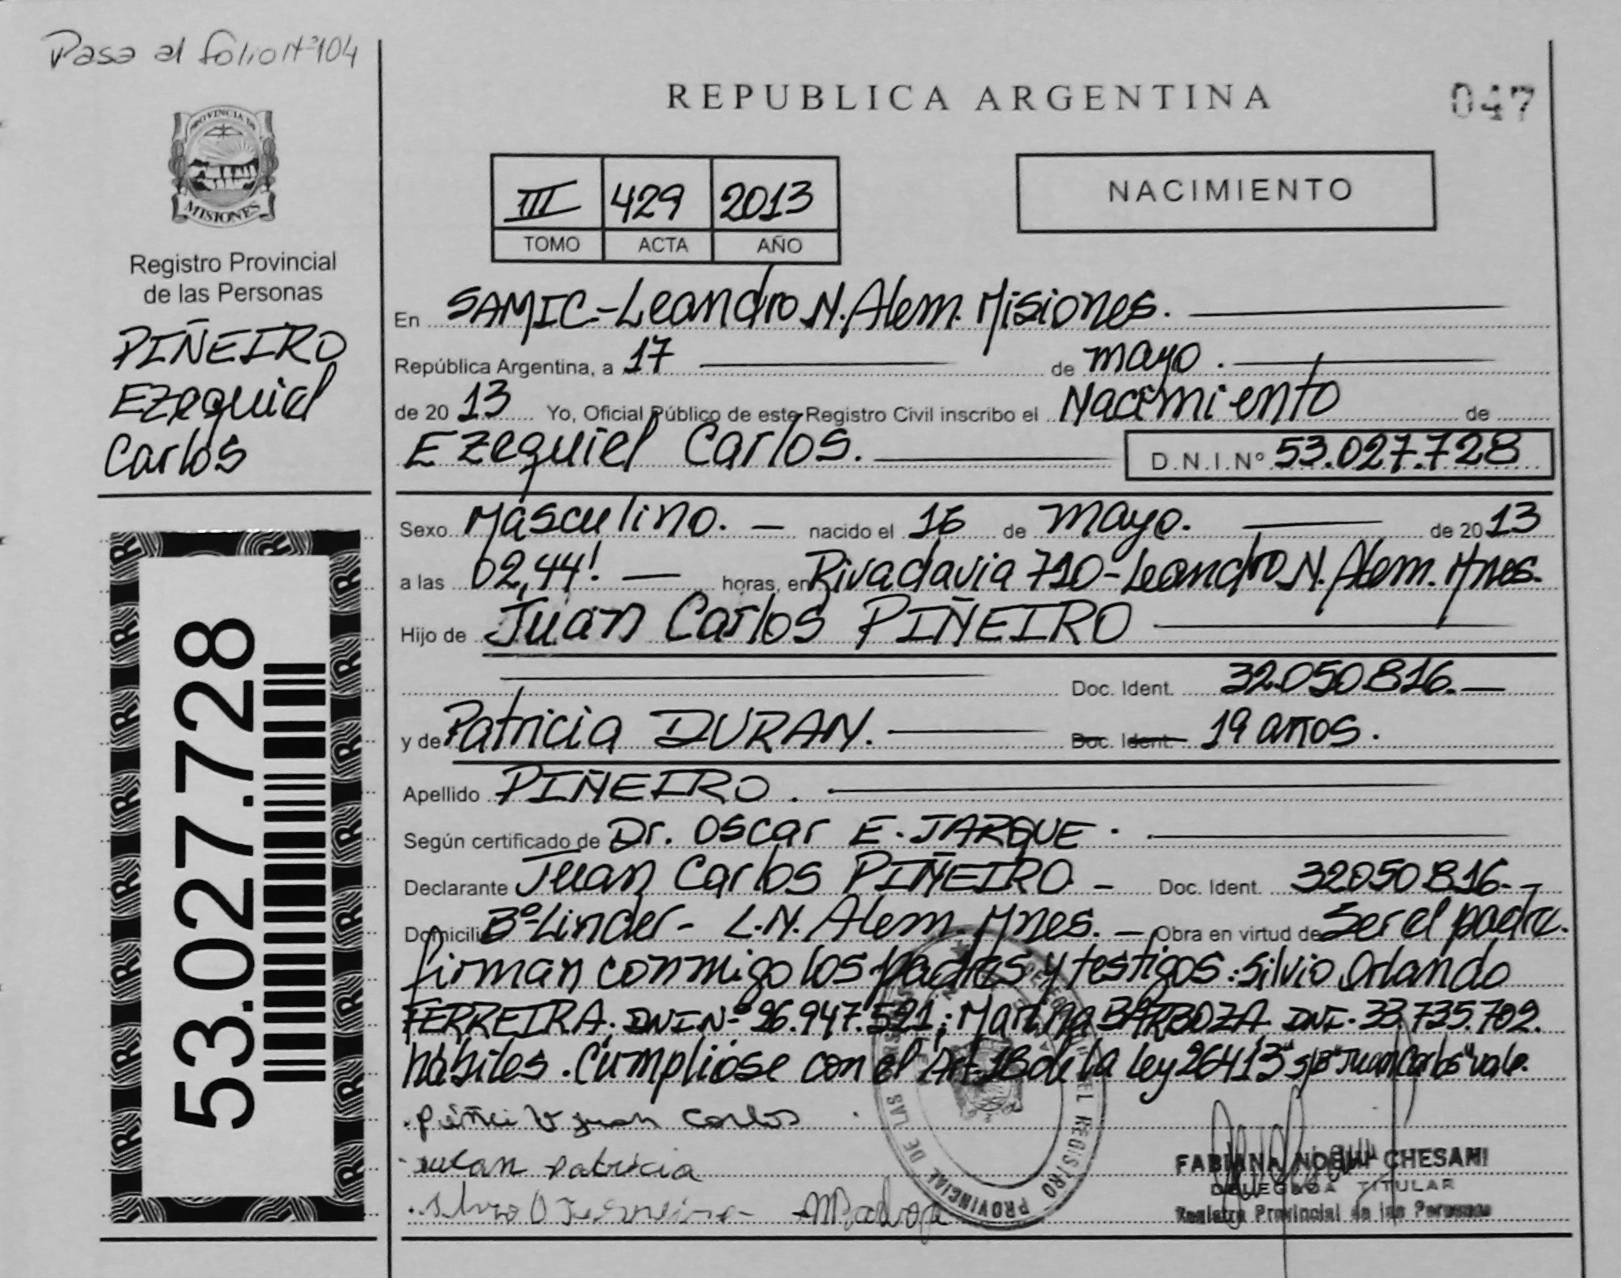 Pasa al folio Nº 104
PROVINCIA DE
MISIONES
Registro Provincial
de las Personas
PIÑEIRO
Ezequiel
Carlos
53.027.728
REPUBLICA ARGENTINA
047
III 429 2013
TOMO ACTA AÑO
NACIMIENTO
En SAMIC-Leandro N. Alem. Misiones.
República Argentina, a 17 de mayo.
de 2013 Yo, Oficial Público de este Registro Civil inscribo el Nacimiento de
Ezequiel Carlos. D.N.I.Nº 53.027.728
Sexo Másculino. nacido el 16 de mayo. de 2013
a las 02,44'. horas, en Rivadavia 710-Leandro N. Alem. Mnes.
Hijo de Juan Carlos PIÑEIRO
Doc. Ident. 32.050.816.
y de Patricia DURAN. Doc. Ident. 19 años.
Apellido PIÑEIRO.
Según certificado de Dr. Oscar E. JARQUE.
Declarante Juan Carlos PIÑEIRO - Doc. Ident. 32050.816.-
Domicilio Bº Linder- L.N. Alem. Mnes. - Obra en virtud de Ser el padre.
firman conmigo los padres y testigos: Silvio Orlando
FERREIRA. DNI Nº 26.947.521; Marina BARBOZA. DNI. 33.735.702.
hábiles. Cumplióse con el Art. 18 de la Ley 26413" s/b "Juan Carlos" vale.
Juan Carlos
Patricia
FABIANA NOEMI CHESANI
DELEGADA TITULAR
Registro Provincial de las Personas